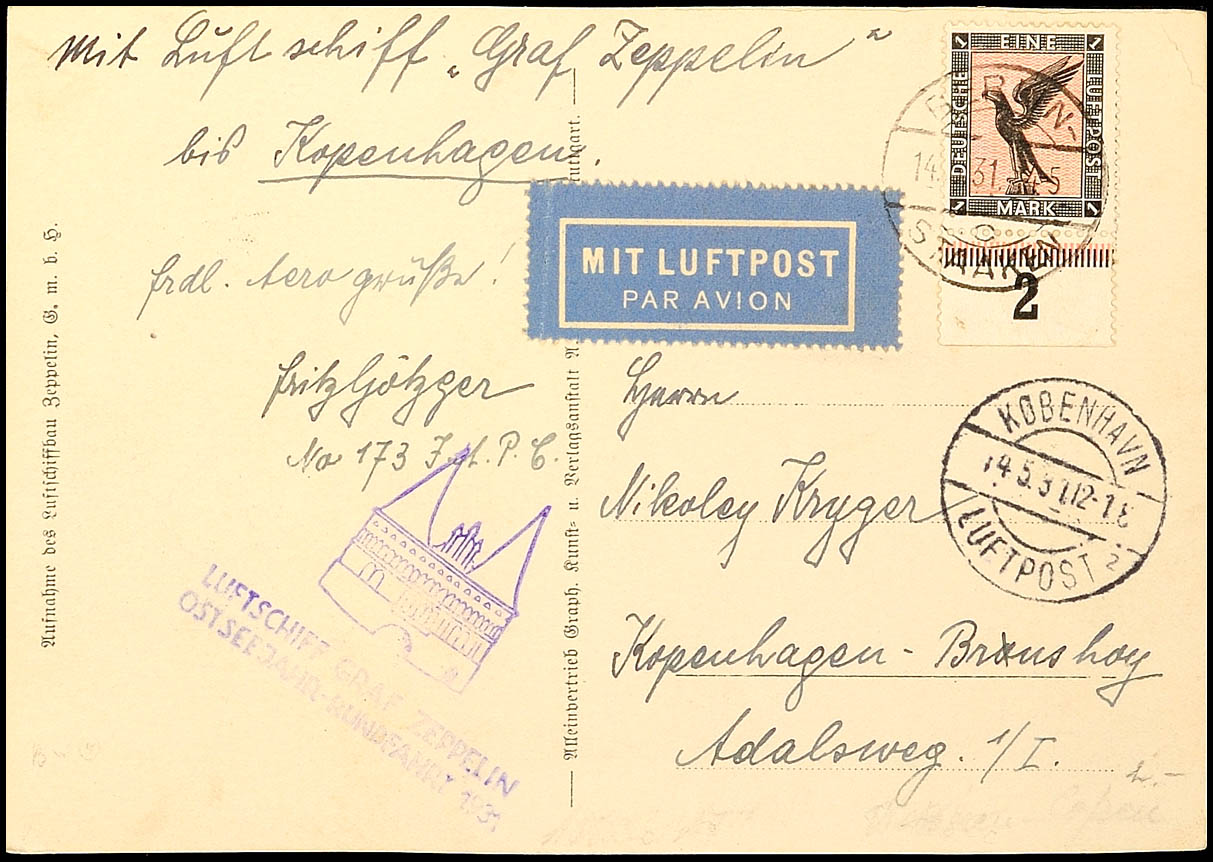 Mit Luftschiff „Graf Zeppelin“
bis Kopenhagen.
frdl. Aerogrüße!
Fritz Götzger
No 173 Int. P. C.
EINE
DEUTSCHE LUFTPOST
1 MARK 1
2
BERLIN-
14. 31.
STAAKEN
MIT LUFTPOST
PAR AVION
Herrn
Nikoley Kryger
Kopenhagen - Brønshoy
Adalsweg. 1/I.
KØBENHAVN
14.5.31 12-1E
LUFTPOST 2
LUFTSCHIFF GRAF ZEPPELIN
OSTSEEJAHR-RUNDFAHRT 1931
Aufnahme des Luftschiffbau Zeppelin, G. m. b. H.
Alleinvertrieb Graph. Kunst- u. Verlagsanstalt